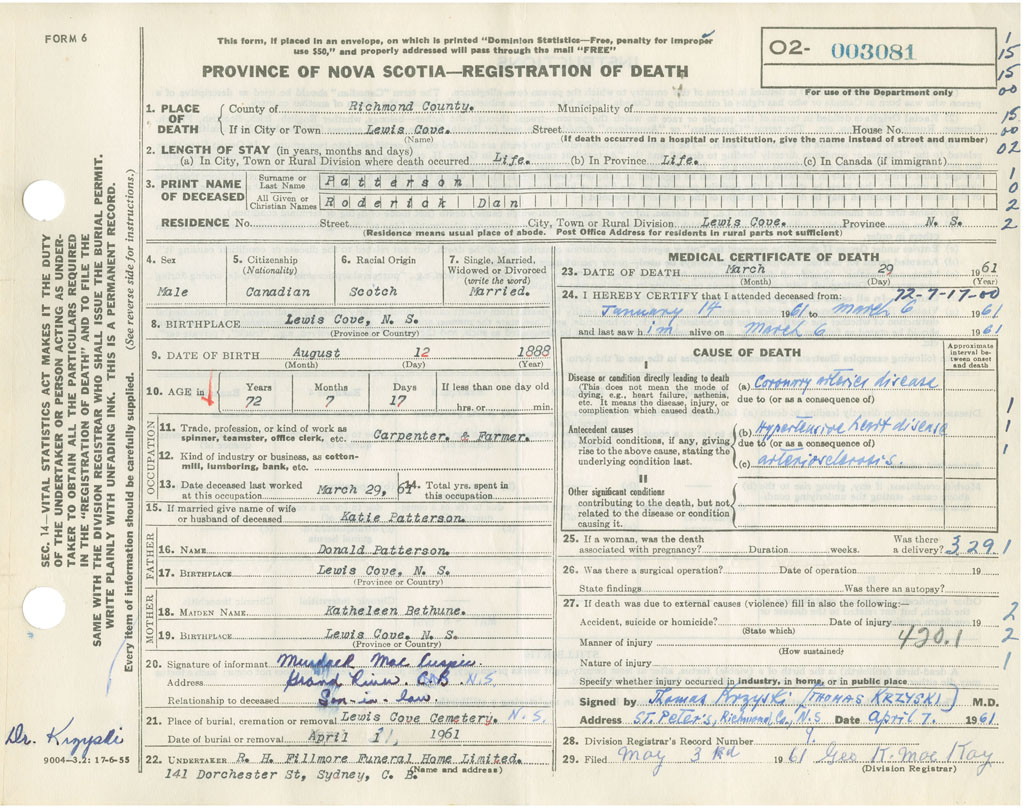 FORM 6
This form, if placed in an envelope, on which is printed "Dominion Statistics—Free, penalty for improper
use $50," and properly addressed will pass through the mail "FREE"
PROVINCE OF NOVA SCOTIA—REGISTRATION OF DEATH
O2- 003081
For use of the Department only
1
15
15
00
15
02
1
0
2
2
1. PLACE OF DEATH
County of Richmond County. Municipality of
If in City or Town Lewis Cove. Street House No.
(Name) (If death occurred in a hospital or institution, give the name instead of street and number)
2. LENGTH OF STAY (in years, months and days)
(a) In City, Town or Rural Division where death occurred Life. (b) In Province Life. (c) In Canada (if immigrant)
3. PRINT NAME OF DECEASED
Surname or Last Name Patterson
All Given or Christian Names Roderick Dan
RESIDENCE No. Street City, Town or Rural Division Lewis Cove. Province N. S.
(Residence means usual place of abode. Post Office Address for residents in rural parts not sufficient)
4. Sex
Male
5. Citizenship
(Nationality)
Canadian
6. Racial Origin
Scotch
7. Single, Married, Widowed or Divorced
(write the word)
Married.
8. BIRTHPLACE Lewis Cove, N. S.
(Province or Country)
9. DATE OF BIRTH August 12 1888
(Month) (Day) (Year)
10. AGE in Years Months Days If less than one day old
72 7 17 hrs. or min.
OCCUPATION
11. Trade, profession, or kind of work as
spinner, teamster, office clerk, etc. Carpenter. & Farmer.
12. Kind of industry or business, as cotton-
mill, lumbering, bank, etc.
13. Date deceased last worked
at this occupation March 29, 61
14. Total yrs. spent in
this occupation
15. If married give name of wife
or husband of deceased Katie Patterson.
FATHER
16. NAME Donald Patterson.
17. BIRTHPLACE Lewis Cove, N. S.
(Province or Country)
MOTHER
18. MAIDEN NAME Katheleen Bethune.
19. BIRTHPLACE Lewis Cove. N. S.
(Province or Country)
20. Signature of informant Murdock Mac
Address Grand River. C.B. N.S.
Relationship to deceased Son-in-law
21. Place of burial, cremation or removal Lewis Cove Cemetery. N. S.
Date of burial or removal April 1, 1961
22. UNDERTAKER R. H. Fillmore Funeral Home Limited.
141 Dorchester St, Sydney, C. B. (Name and address)
MEDICAL CERTIFICATE OF DEATH
23. DATE OF DEATH March 29 1961
(Month) (Day) (Year)
72-7-17-00
24. I HEREBY CERTIFY that I attended deceased from:
January 14 1961 to March 6 1961
and last saw him alive on March 6 1961
CAUSE OF DEATH
Approximate interval between onset and death
I
Disease or condition directly leading to death
(This does not mean the mode of
dying, e.g., heart failure, asthenia,
etc. It means the disease, injury, or
complication which caused death.)
(a) Coronary arteries disease
due to (or as a consequence of)
Antecedent causes
Morbid conditions, if any, giving
rise to the above cause, stating the
underlying condition last.
(b) Hypertensive heart disease
due to (or as a consequence of)
(c) arteriosclerosis.
1
1
1
II
Other significant conditions
contributing to the death, but not
related to the disease or condition
causing it.
25. If a woman, was the death
associated with pregnancy? Duration weeks. Was there
a delivery?
3291
26. Was there a surgical operation? Date of operation 19
State findings Was there an autopsy?
27. If death was due to external causes (violence) fill in also the following:—
Accident, suicide or homicide? Date of injury 19
(State which)
Manner of injury 420.1
(How sustained)
Nature of injury
2
2
1
Specify whether injury occurred in industry, in home, or in public place
Signed by Thomas Krzyski (THOMAS KRZYSKI) M.D.
Address ST. Peter's, Richmond Co., N.S. Date April 7. 1961
28. Division Registrar's Record Number 9.
29. Filed May 3rd 1961 Geo R. Mac Kay
(Division Registrar)
SEC. 14—VITAL STATISTICS ACT MAKES IT THE DUTY
OF THE UNDERTAKER OR PERSON ACTING AS UNDER-
TAKER TO OBTAIN ALL THE PARTICULARS REQUIRED
IN THE "REGISTRATION OF DEATH" AND TO FILE THE
SAME WITH THE DIVISION REGISTRAR WHO SHALL ISSUE THE BURIAL PERMIT.
WRITE PLAINLY WITH UNFADING INK. THIS IS A PERMANENT RECORD.
Every item of information should be carefully supplied. (See reverse side for instructions.)
Dr. Krzyski
9004—3.2: 17-6-55